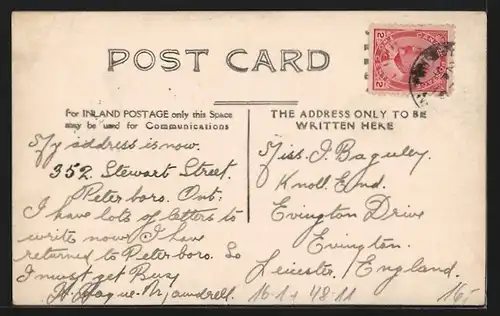 POST CARD
For INLAND POSTAGE only this Space
may be used for Communications
THE ADDRESS ONLY TO BE
WRITTEN HERE
My address is now.
352. Stewart Street.
Peterboro. Ont:
I have lots of letters to
write now I have
returned to Peterboro. So
I must get Busy
H. Hague.
Miss. J. Baguley.
Knoll End.
Evington Drive
Evington.
Leicester/England.
16.1+ 48.11
165
2 2